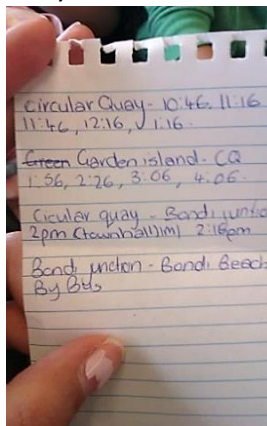 Circular Quay - 10:46, 11:16
11:46, 12:16, 1:16.
Green Garden island - CQ
1:56, 2:26, 3:06, 4:06.
Cicular quay - Bondi
2pm (townhall) 2:16pm
Bondi junction - Bondi Beach
By Bus